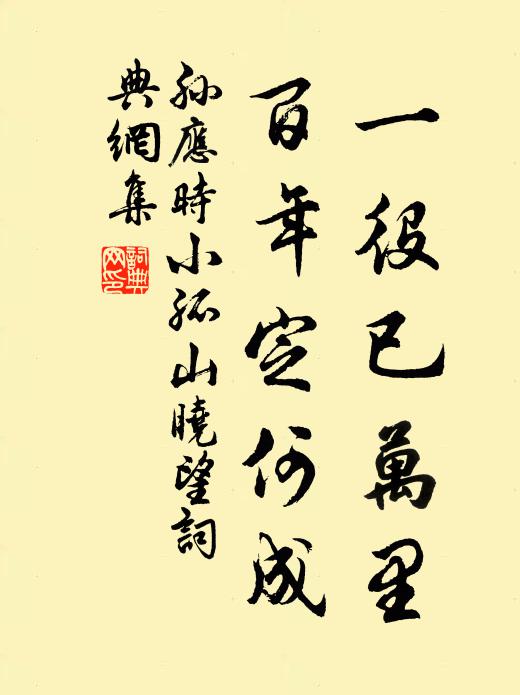 一役已萬里
百年定何成
孫應時小孤山曉望詞
典網集
詞典
网印